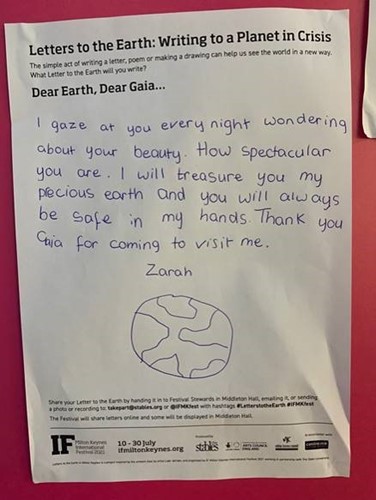 Letters to the Earth: Writing to a Planet in Crisis
The simple act of writing a letter, poem or making a drawing can help us see the world in a new way.
What Letter to the Earth will you write?
Dear Earth, Dear Gaia...
I gaze at you every night wondering
about your beauty. How spectacular
you are. I will treasure you my
pecious earth and you will always
be safe in my hands. Thank you
Gaia for coming to visit me.
Zarah
Share your Letter to the Earth by handing it in to Festival Stewards in Middleton Hall, emailing it, or sending
a photo or recording to: takepart@stables.org or @IFMKfest with hashtags #LetterstotheEarth #IFMKfest
The Festival will share letters online and some will be displayed in Middleton Hall.
IF
Milton Keynes
International
Festival 2021
10 - 30 July
ifmiltonkeynes.org
stables
ARTS COUNCIL
ENGLAND